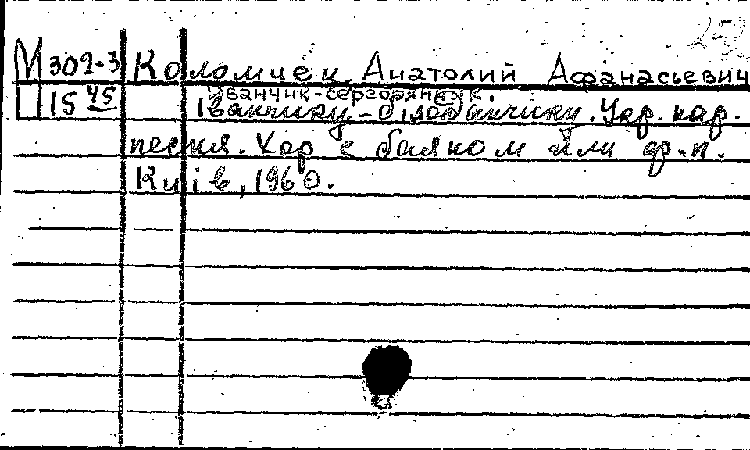 М 309-3 Коломиец Анатолий Афанасьевич
15 45
Іванчику-білованчику. Укр. нар.
песня. Хор с баяном или ф.-п.
Київ, 1960.